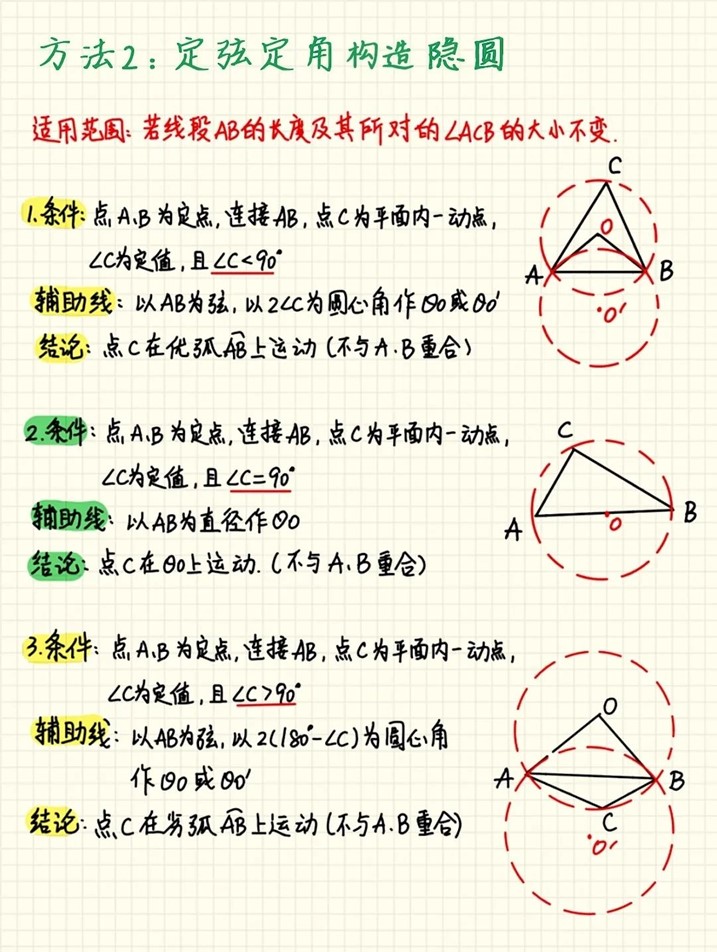 方法2：定弦定角构造隐圆
适用范围：若线段AB的长度及其所对的∠ACB的大小不变.
1.条件：点A、B为定点，连接AB，点C为平面内一动点，
∠C为定值，且∠C<90°
辅助线：以AB为弦，以2∠C为圆心角作⊙O或⊙O'
结论：点C在优弧AB上运动（不与A、B重合）
C
O
A
B
O'
2.条件：点A、B为定点，连接AB，点C为平面内一动点，
∠C为定值，且∠C=90°
辅助线：以AB为直径作⊙O
结论：点C在⊙O上运动.（不与A、B重合）
C
A
O
B
3.条件：点A、B为定点，连接AB，点C为平面内一动点，
∠C为定值，且∠C>90°
辅助线：以AB为弦，以2(180°-∠C)为圆心角
作⊙O或⊙O'
结论：点C在劣弧AB上运动（不与A、B重合）
O
A
B
C
O'